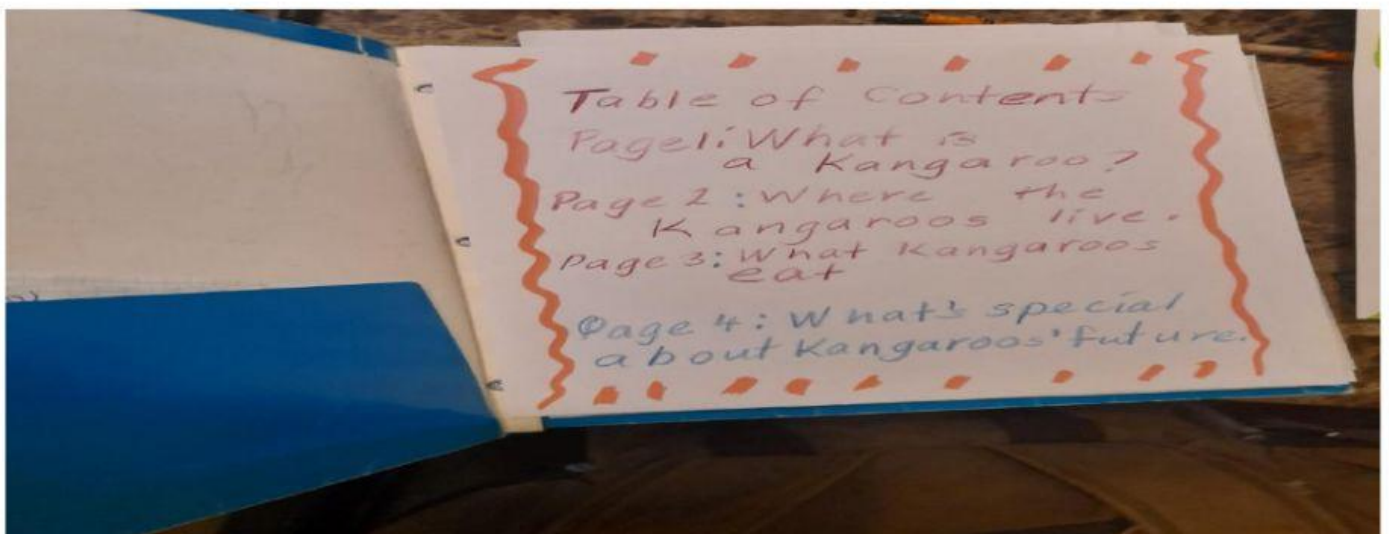 Table of Contents
Page 1: What is
a Kangaroo?
Page 2: Where the
Kangaroos live.
Page 3: What Kangaroos
eat
Page 4: What's special
about Kangaroos' future.